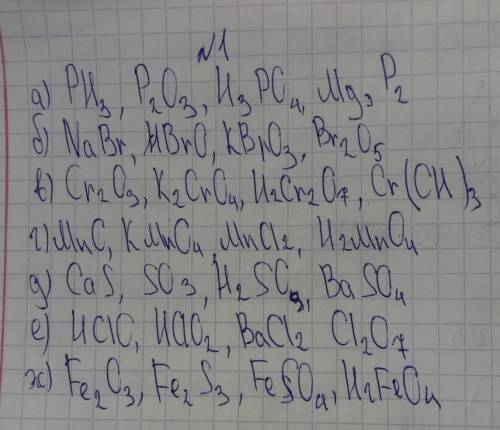 №1
а) PH₃, P₂O₃, H₃PO₄, Mg₃P₂
б) NaBr, HBrO, KBrO₃, Br₂O₅
в) Cr₂O₃, K₂CrO₄, H₂Cr₂O₇, Cr(OH)₃
г) MnO, KMnO₄, MnCl₂, H₂MnO₄
д) CaS, SO₃, H₂SO₃, BaSO₄
е) HClO, HClO₂, BaCl₂ Cl₂O₇
ж) Fe₂O₃, Fe₂S₃, FeSO₄, H₂FeO₄